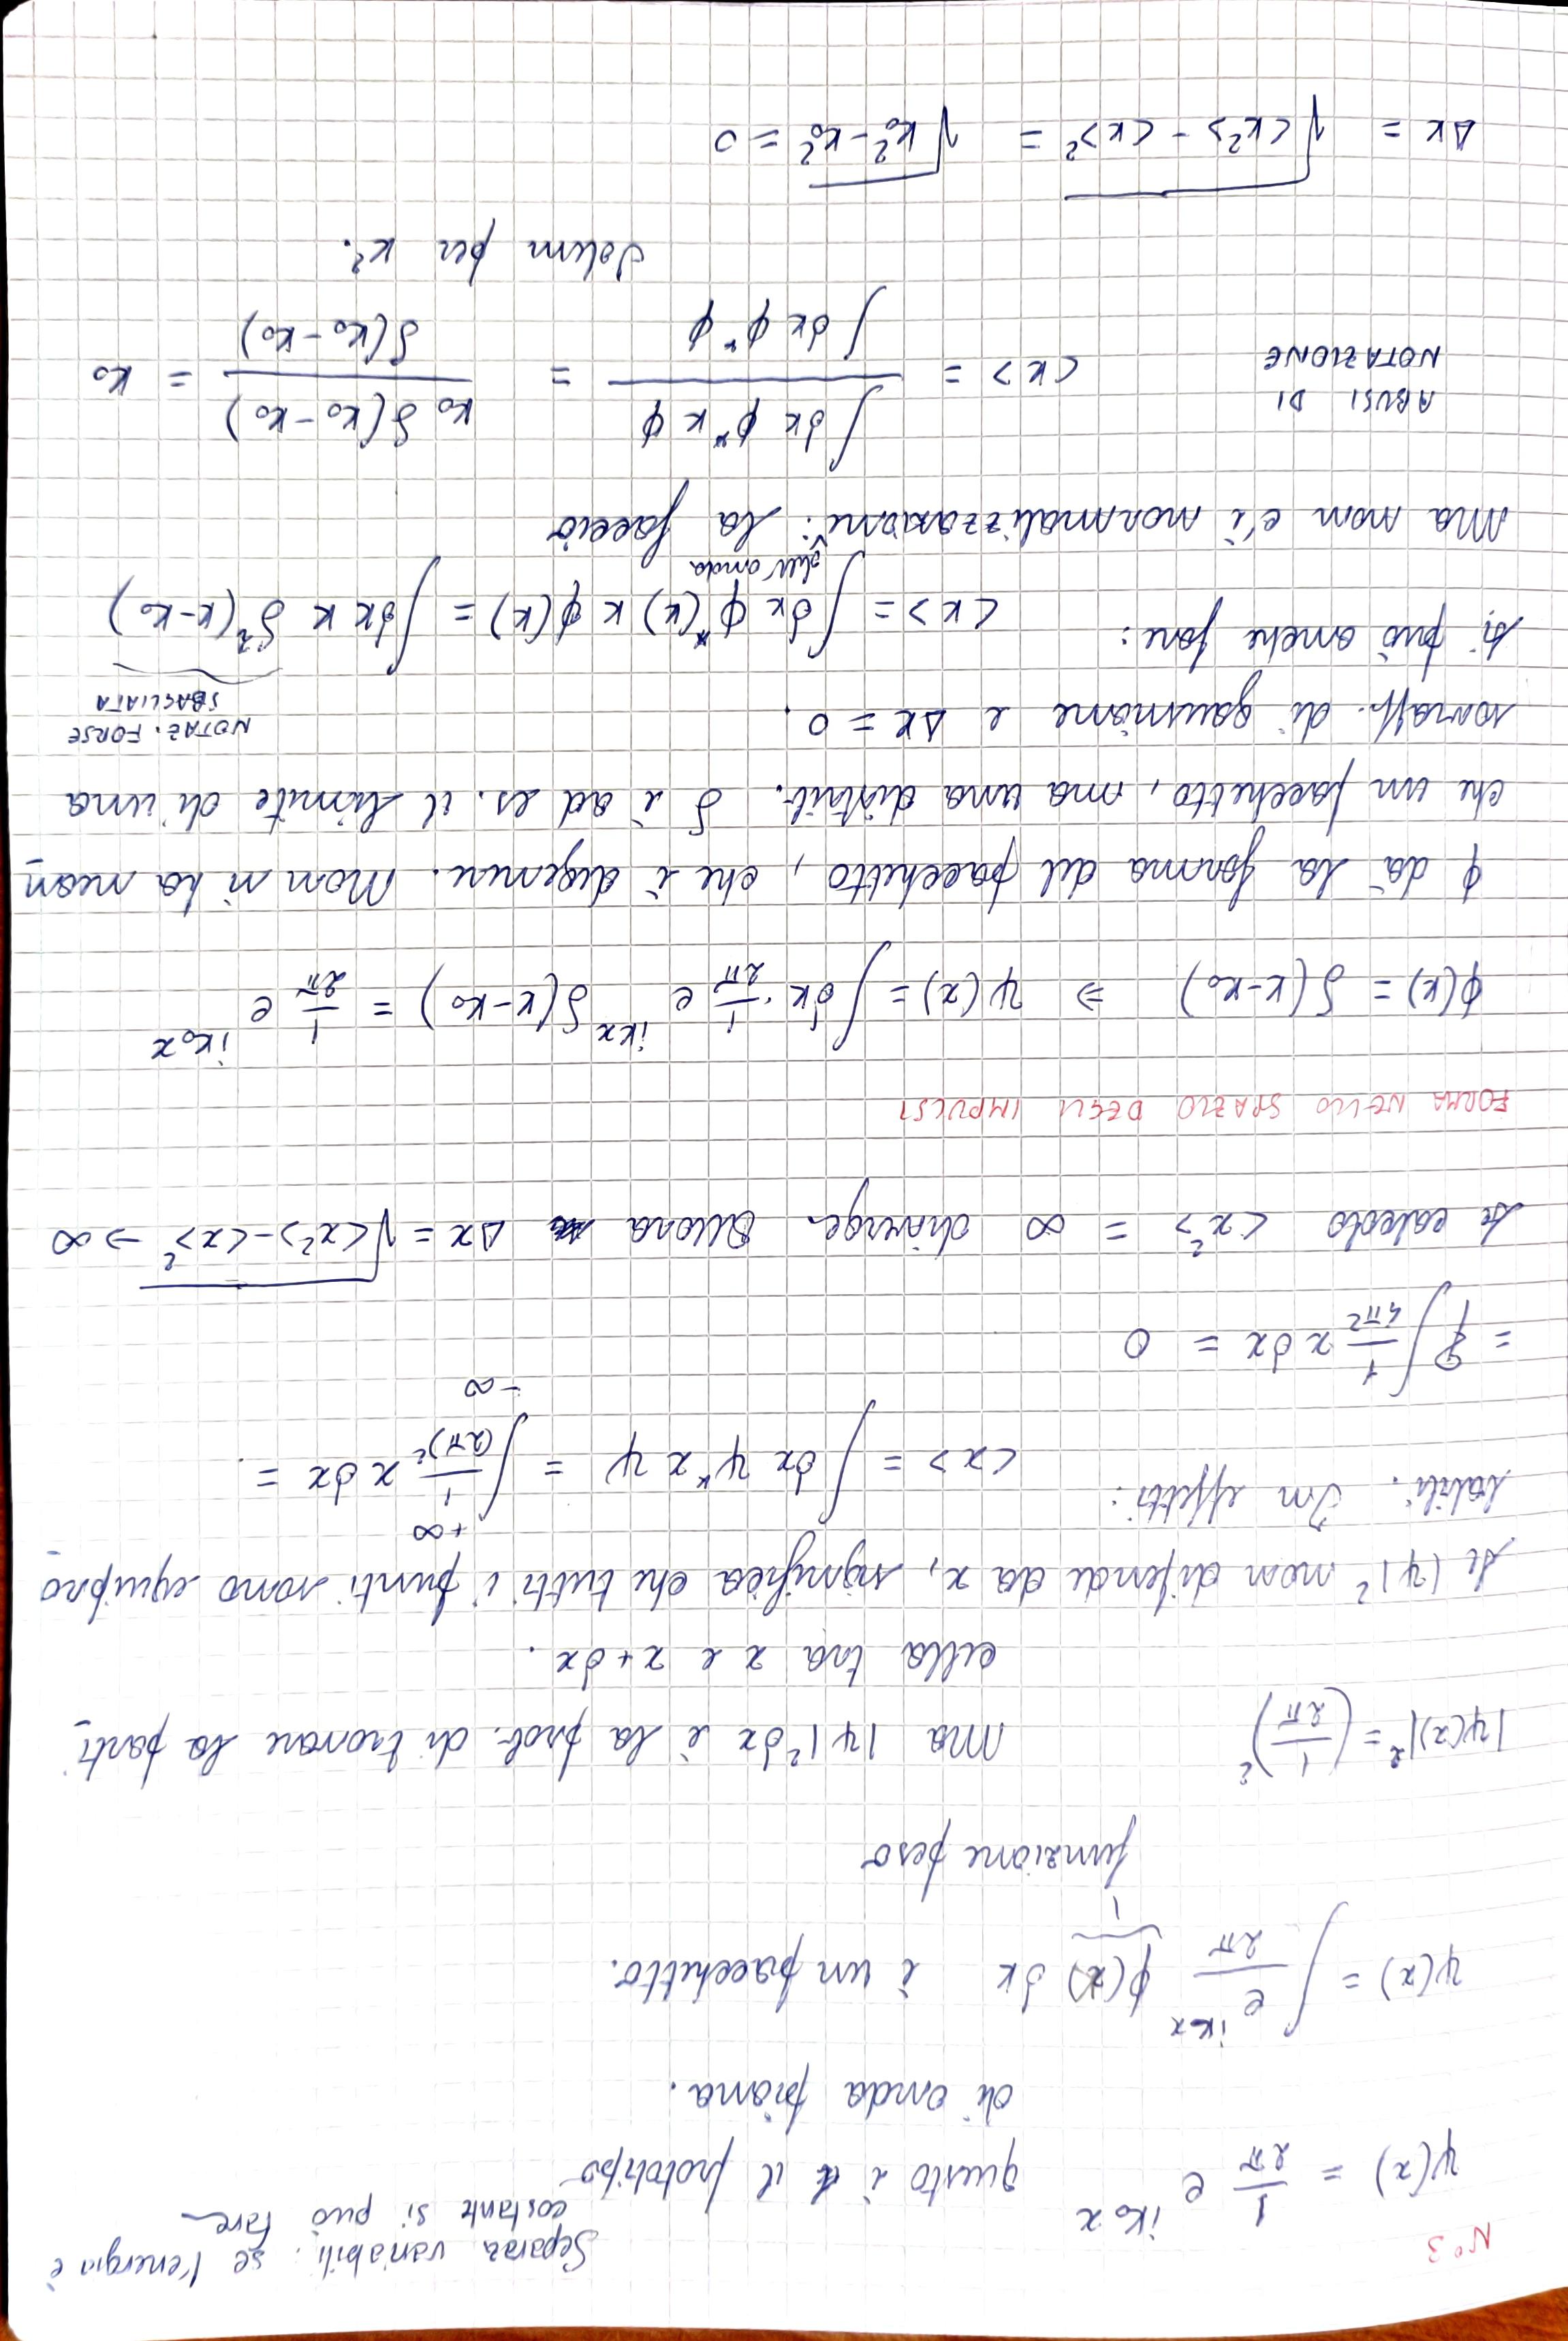 N°3
Separaz variabili: se l'energia è
costante si può fare
ψ(x) = 1/2π e^{ik₀x} questo è il prototipo
di onda piana.
ψ(x) = ∫ e^{ikx}/2π φ(x) dk è un pacchetto.
funzione peso
|ψ(x)|² = (1/2π)² Ma |ψ|² dx è la prob. di trovare la parti
cella tra x e x+dx.
Se |ψ|² non dipende da x, significa che tutti i punti sono equipro
babili. In effetti: <x> = ∫ dx ψ* x ψ = ∫_{-∞}^{+∞} 1/(2π)² x dx =
= ∫ 1/4π² x dx = 0
Se calcolo <x²> = ∞ diverge. Allora Δx = √<x²>-<x>² → ∞
FORMA NELLO SPAZIO DEGLI IMPULSI
φ(k) = δ(k-k₀) ⇒ ψ(x) = ∫ dk · 1/2π e^{ikx} δ(k-k₀) = 1/2π e^{ik₀x}
φ dà la forma del pacchetto, che è degenere. Non si ha nean
che un pacchetto, ma una distrib. δ è ad es. il limite di una
sovrapp. di gaussiane e Δk = 0.
NOTAZ. FORSE
SBAGLIATA
Si può anche fare: <k> = ∫ dk φ*(k) k φ(k) = ∫ dk k δ²(k-k₀)
dell'onda
Ma non c'è normalizzazione: la faccio
ABUSI DI
NOTAZIONE
<k> = ∫ dk φ* k φ / ∫ dk φ* φ = k₀ δ(k₀-k₀) / δ(k₀-k₀) = k₀
Idem per k².
Δk = √<k²> - <k>² = √k₀² - k₀² = 0